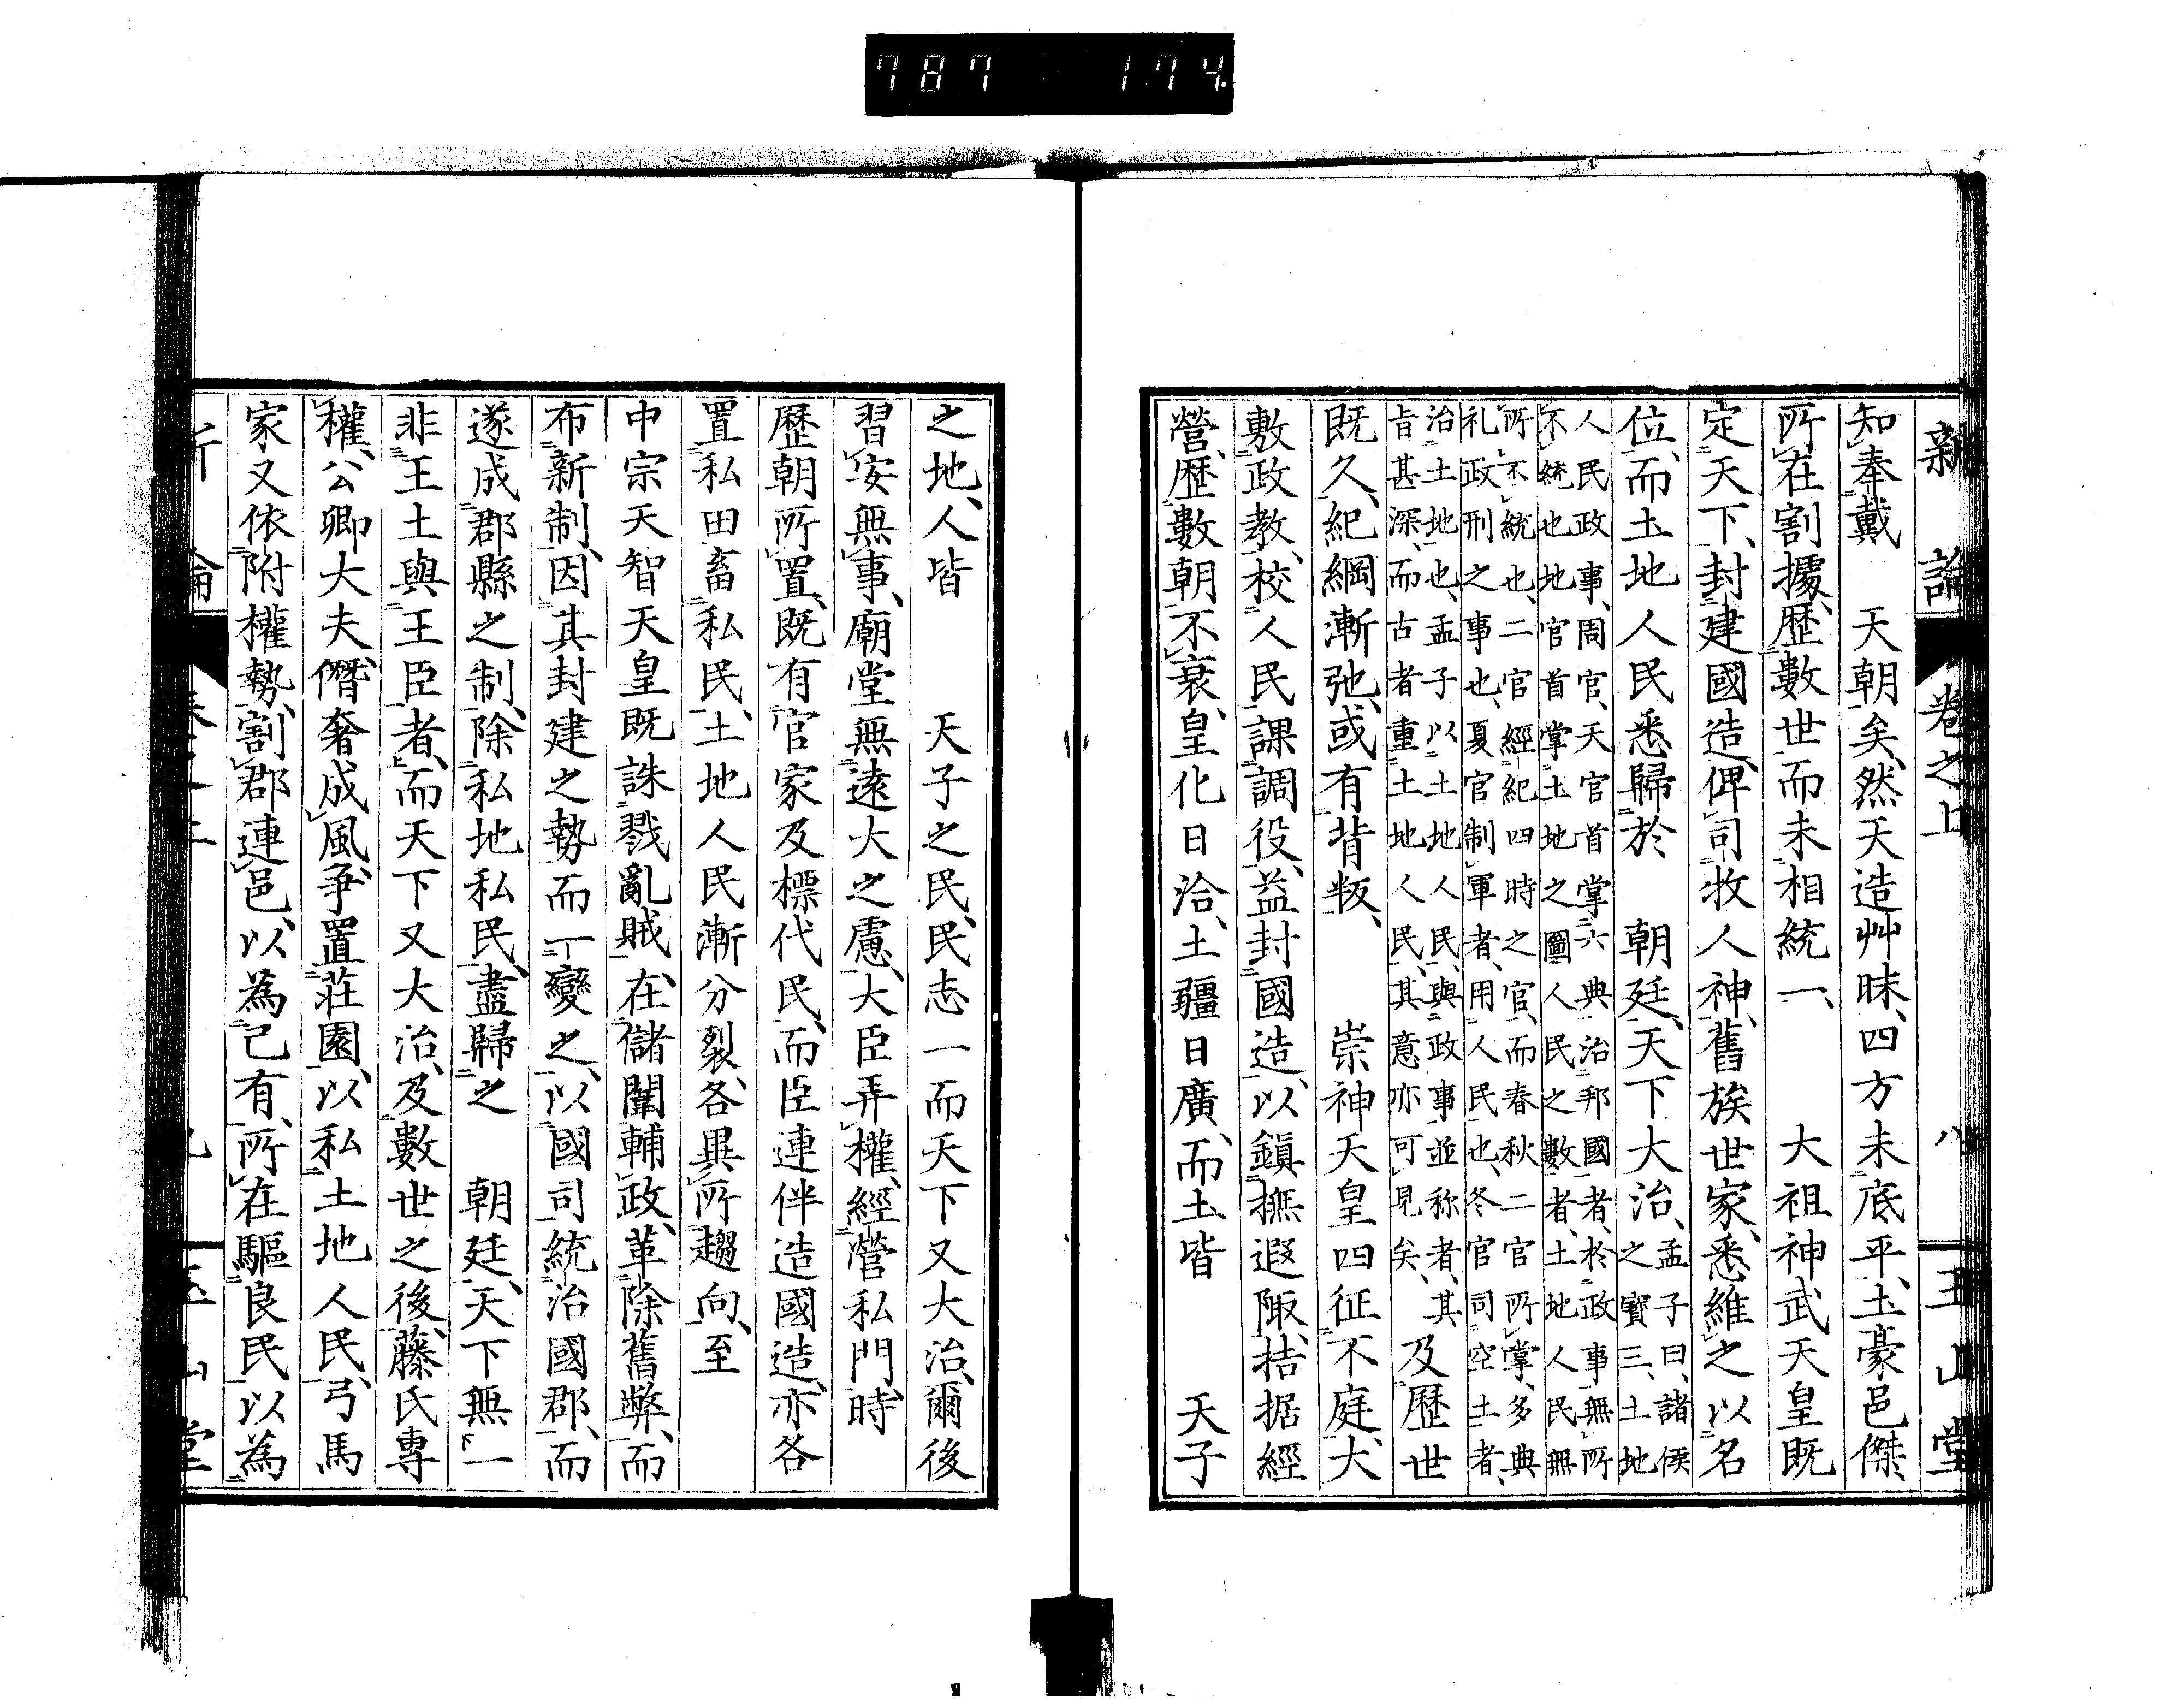 787 174.
新論 卷之上 八 玉山堂
知奉戴　天朝矣、然天造艸昧、四方未底平、土豪邑傑、
所在割據、歷數世而未相統一、　大祖神武天皇既
定天下、封建國造、俾司牧人神、舊族世家、悉維之以名
位、而土地人民悉歸於　朝廷、天下大治、孟子曰、諸侯
之寶三、土地
人民政事、周官、天官首掌六典治邦國者、於政事無所
不統也、地官首掌土地之圖人民之數者、土地人民無
所不統也、二官經紀四時之官、而春秋二官所掌、多典
礼政刑之事也、夏官制軍者、用人民也、冬官司空土者、
治土地也、孟子以土地人民、與政事並称者、其
旨甚深、而古者重土地人民、其意亦可見矣、　及歷世
既久、紀綱漸弛、或有背叛、　崇神天皇四征不庭、大
敷政教、校人民、課調役、益封國造、以鎮撫遐陬、拮据經
營、歷數朝不衰、皇化日洽、土疆日廣、而土皆　天子
之地、人皆　天子之民、民志一而天下又大治、爾後
習安無事、廟堂無遠大之慮、大臣弄權、經營私門、時
歷朝所置、既有官家及標代民、而臣連伴造國造、亦各
置私田畜私民、土地人民漸分裂、各異所趨向、至
中宗天智天皇既誅戮亂賊、在儲闈輔政、革除舊弊、而
布新制、因其封建之勢而一變之、以國司統治國郡、而
遂成郡縣之制、除私地私民、盡歸之　朝廷、天下無一
非王土與王臣者、而天下又大治、及數世之後、藤氏專
權、公卿大夫、僭奢成風、爭置莊園、以私土地人民、弓馬
家又依附權勢、割郡連邑、以為己有、所在驅良民以為